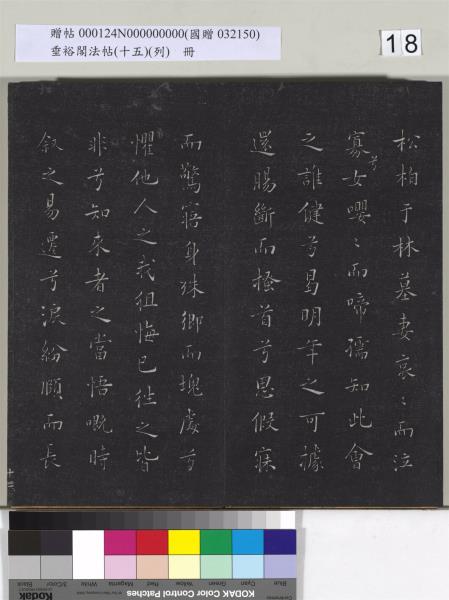 贈帖 000124N000000000(國贈 032150)
垂裕閣法帖(十五)(列) 冊
18
松柏于林墓妻哀〻而泣
寡兮女嚶〻而啼孺知此會
之誰健兮曷明年之可據
還腸斷而搔首兮思假寐
而驚寤身殊鄉而塊處兮
懼他人之我徂悔已往之皆
非兮知來者之當悟嘅時
叙之易遷兮淚紛頋而長
十二
Kodak
Black
3/Color
White
Magenta
Red
Yellow
Green
Cyan
Blue
KODAK Color Control Patches